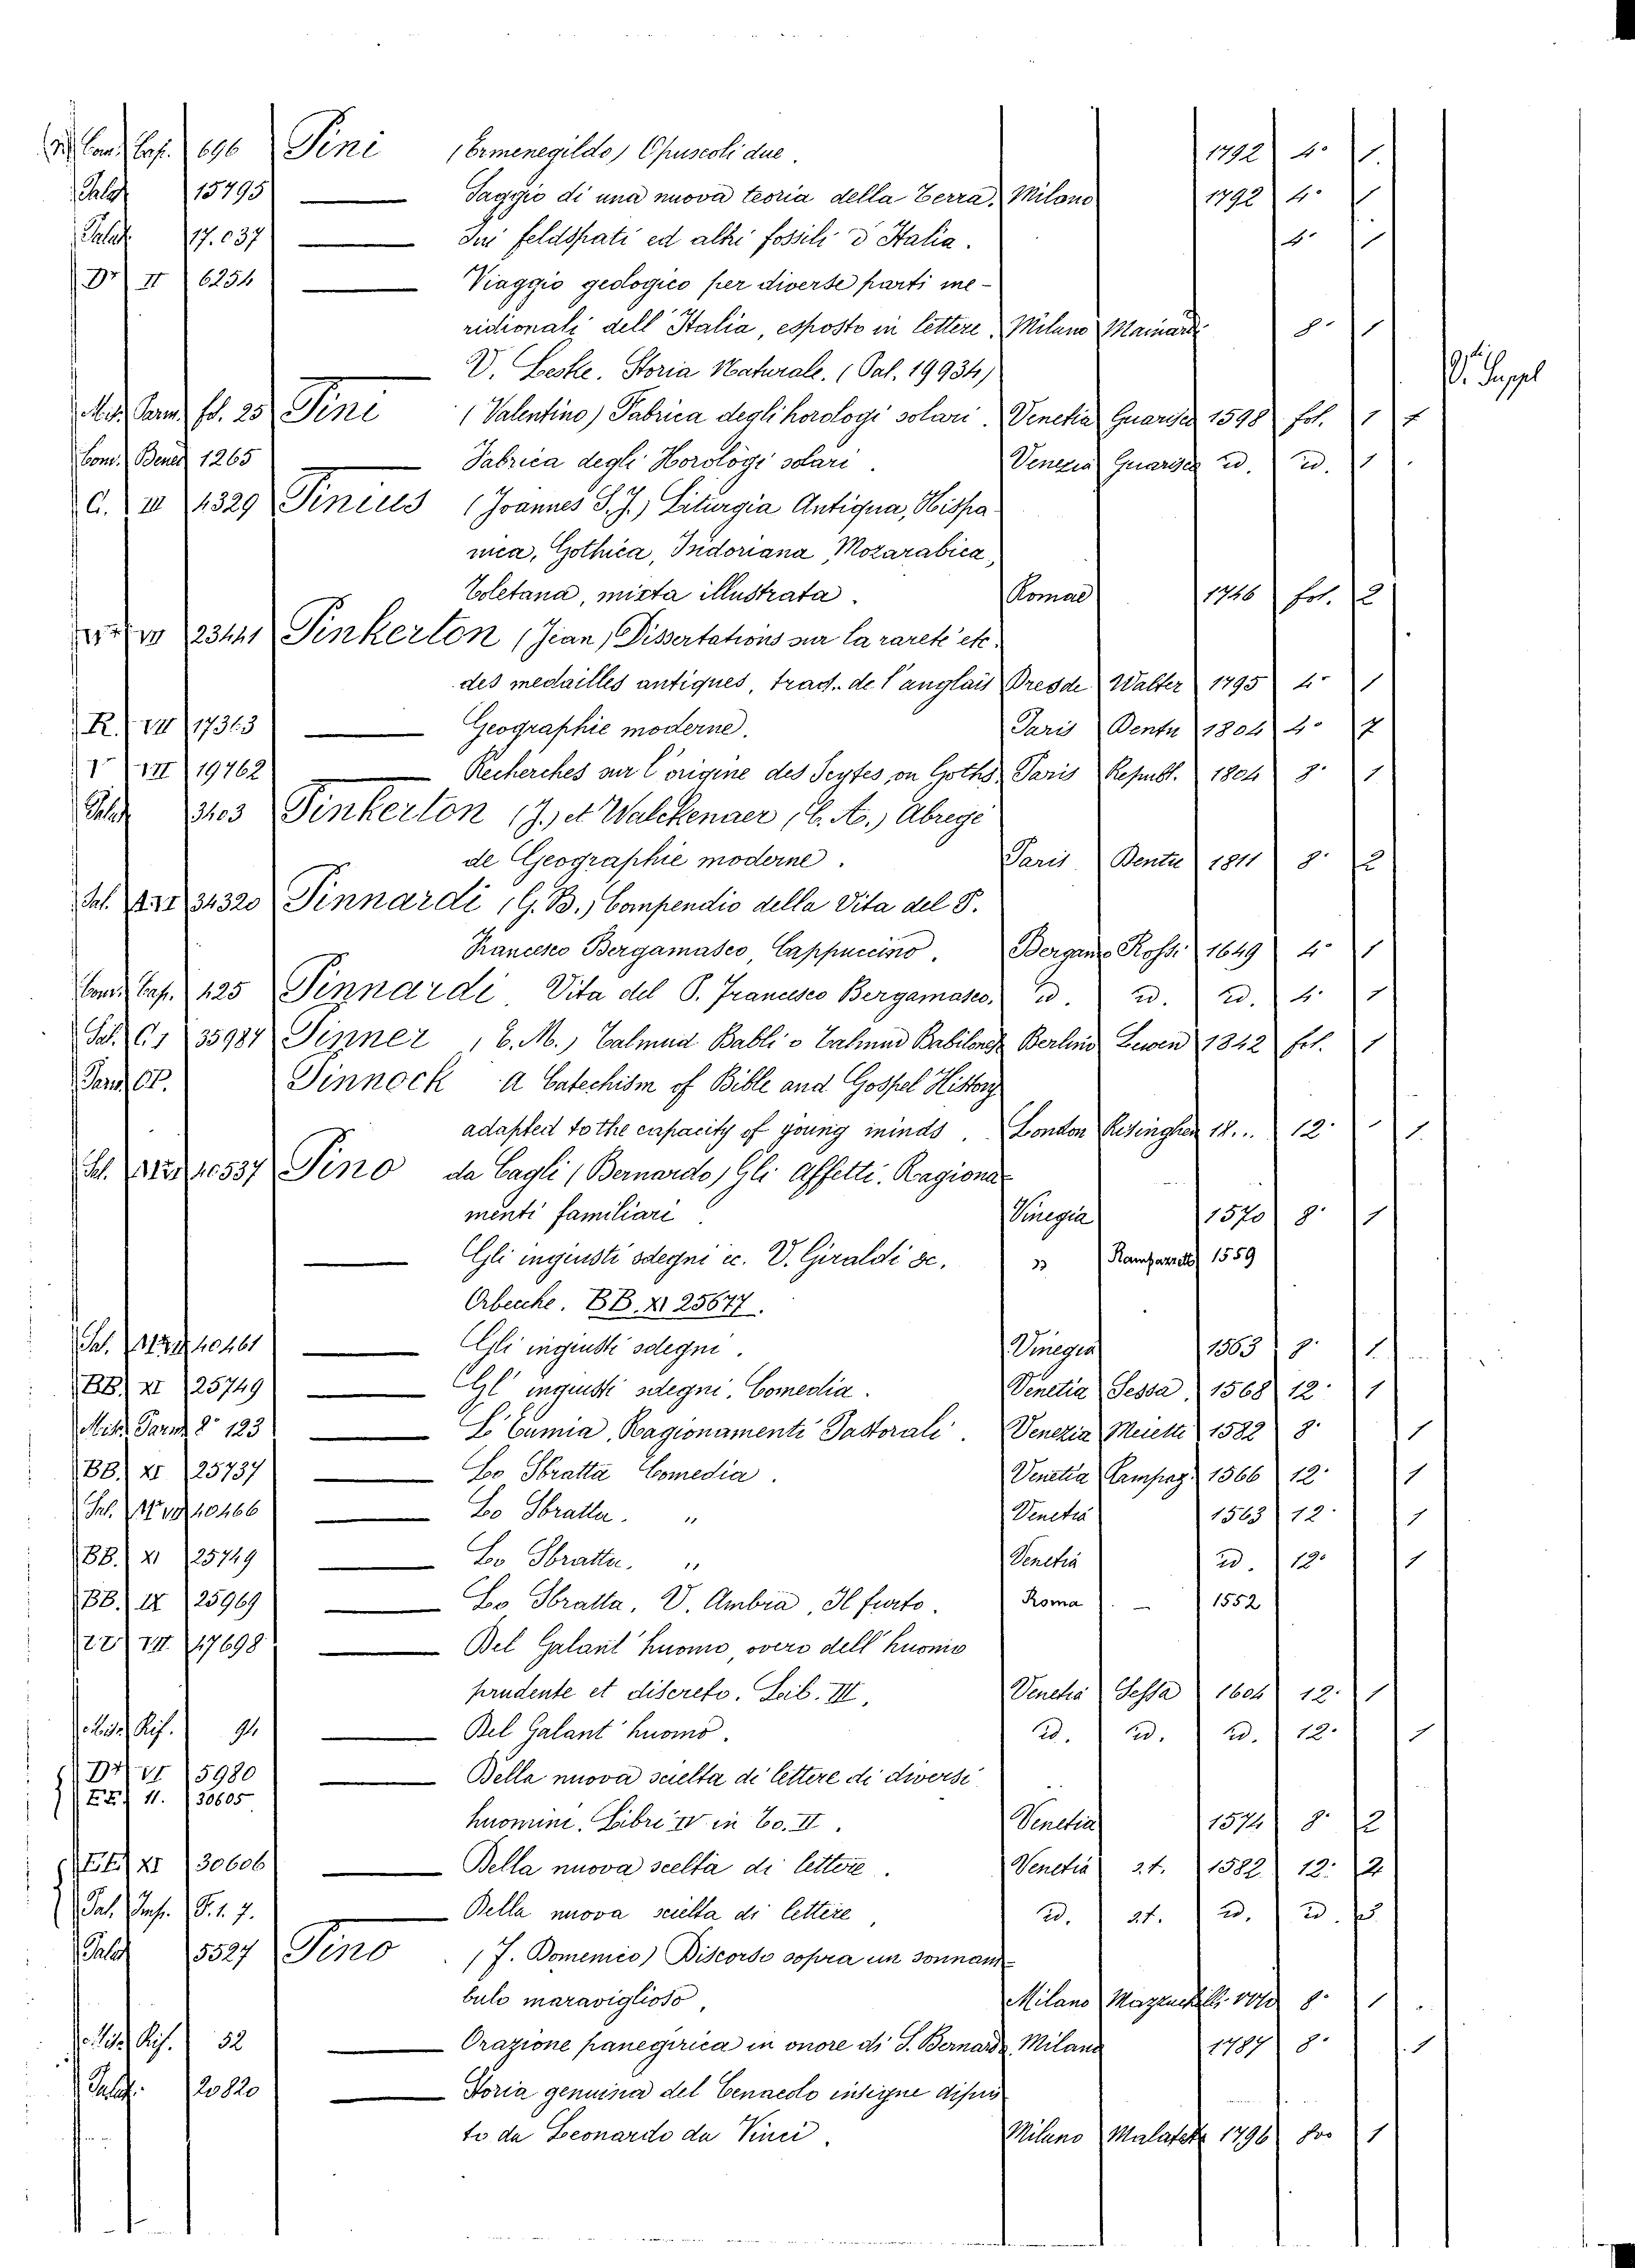 Conv. Cap. 696 Pini (Ermenegildo) Opuscoli due. 1792 4° 1.
Palat. 15795 Saggio di una nuova teoria della Terra, Milano 1792 4° 1
Palat. 17.037 Sui feldspati ed altri fossili d'Italia. 4° 1
II 6254 Viaggio geologico per diverse parti me-
ridionali dell'Italia, esposto in lettere. Milano Mainardi 8° 1
V. Leske. Storia Naturale. (Pal. 19934) V. Suppl
Parm. fol. 25 Pini (Valentino) Fabrica degli horologi solari. Venetia Guarisco 1598 fol. 1
Conv. Bened. 1265 Fabrica degli Horologi solari. Venezia Guarisco id. id. 1
C. III 4329 Pinius (Joannes S.J.) Liturgia Antiqua, Hispa-
nica, Gothica, Isidoriana, Mozarabica,
Toletana, mixta illustrata. Romae 1746 fol. 2
23441 Pinkerton (Jean) Dissertations sur la rareté etc.
des medailles antiques, trad. de l'anglais Dresde Walter 1795 4° 1
R. VII 17313 Geographie moderne. Paris Dentu 1804 4° 7
VII 19762 Recherches sur l'origine des Scytes ou Goths. Paris Republ. 1804 8° 1
Palat. 3403 Pinkerton (J.) et Walckenaer (C. A.) Abregé
de Geographie moderne. Paris Dentu 1811 8° 2
Pal. 34320 Pinnardi (G. B.) Compendio della Vita del P.
Francesco Bergamasco, Cappuccino. Bergamo Rossi 1649 4° 1
Conv. Cap. 425 Pinnardi Vita del P. Francesco Bergamasco. id. id. id. 4° 1
Pal. 35984 Pinner (E. M.) Talmud Babli o Talmud Babilonese Berlino Lewen 1842 fol. 1
Pinnock A Catechism of Bible and Gospel History
adapted to the capacity of young minds. London 18... 12° 1.
Pal. 40537 Pino da Cagli (Bernardo) Gli Affetti. Ragiona-
menti familiari. Vinegia 1570 8° 1
Gli ingiusti sdegni ec. V. Giraldi ec. " Rampazzetto 1559
Orbecche. BB. XI 25677.
Pal. 40461 Gli ingiusti sdegni. Vinegia 1563 8° 1
BB. XI 25749 Gl'ingiusti sdegni. Comedia. Venetia Sessa 1568 12° 1
Parm. 8° 123 L'Eumia, Ragionamenti Pastorali. Venezia Meietti 1582 8° 1
BB. XI 25737 Lo Sbratta Comedia. Venetia Campag. 1566 12° 1
Pal. 40466 Lo Sbratta. " Venetia 1563 12° 1
BB. XI 25749 Lo Sbratta. " Venetia id. 12° 1
BB. IX 25969 Lo Sbratta. V. Ambra, Il furto. Roma – 1552
VII 17698 Del Galant'huomo, overo dell'huomo
prudente et discreto. Lib. III. Venetia Sessa 1604 12° 1
Rif. 91. Del Galant'huomo. id. id. id. 12° 1
VI 5980
EE. 11. 30605 Della nuova scielta di lettere di diversi
huomini. Libri IV in To. II. Venetia 1574 8° 2
EE. XI 30606 Della nuova scelta di lettere. Venetia 2.t. 1582 12° 2
Pal. F. 1. 7. Della nuova scielta di lettere, id. 2.t. id. id.
Palat. 5527 Pino (F. Domenico) Discorso sopra un sonnam-
bulo maraviglioso, Milano Mazzuchelli 8° 1
Rif. 52 Orazione panegirica in onore di S. Bernardo Milano 1787 8° 1
Palat. 20820 Storia genuina del Cenacolo insigne dipin-
to da Leonardo da Vinci. Milano Malatesta 1796 1